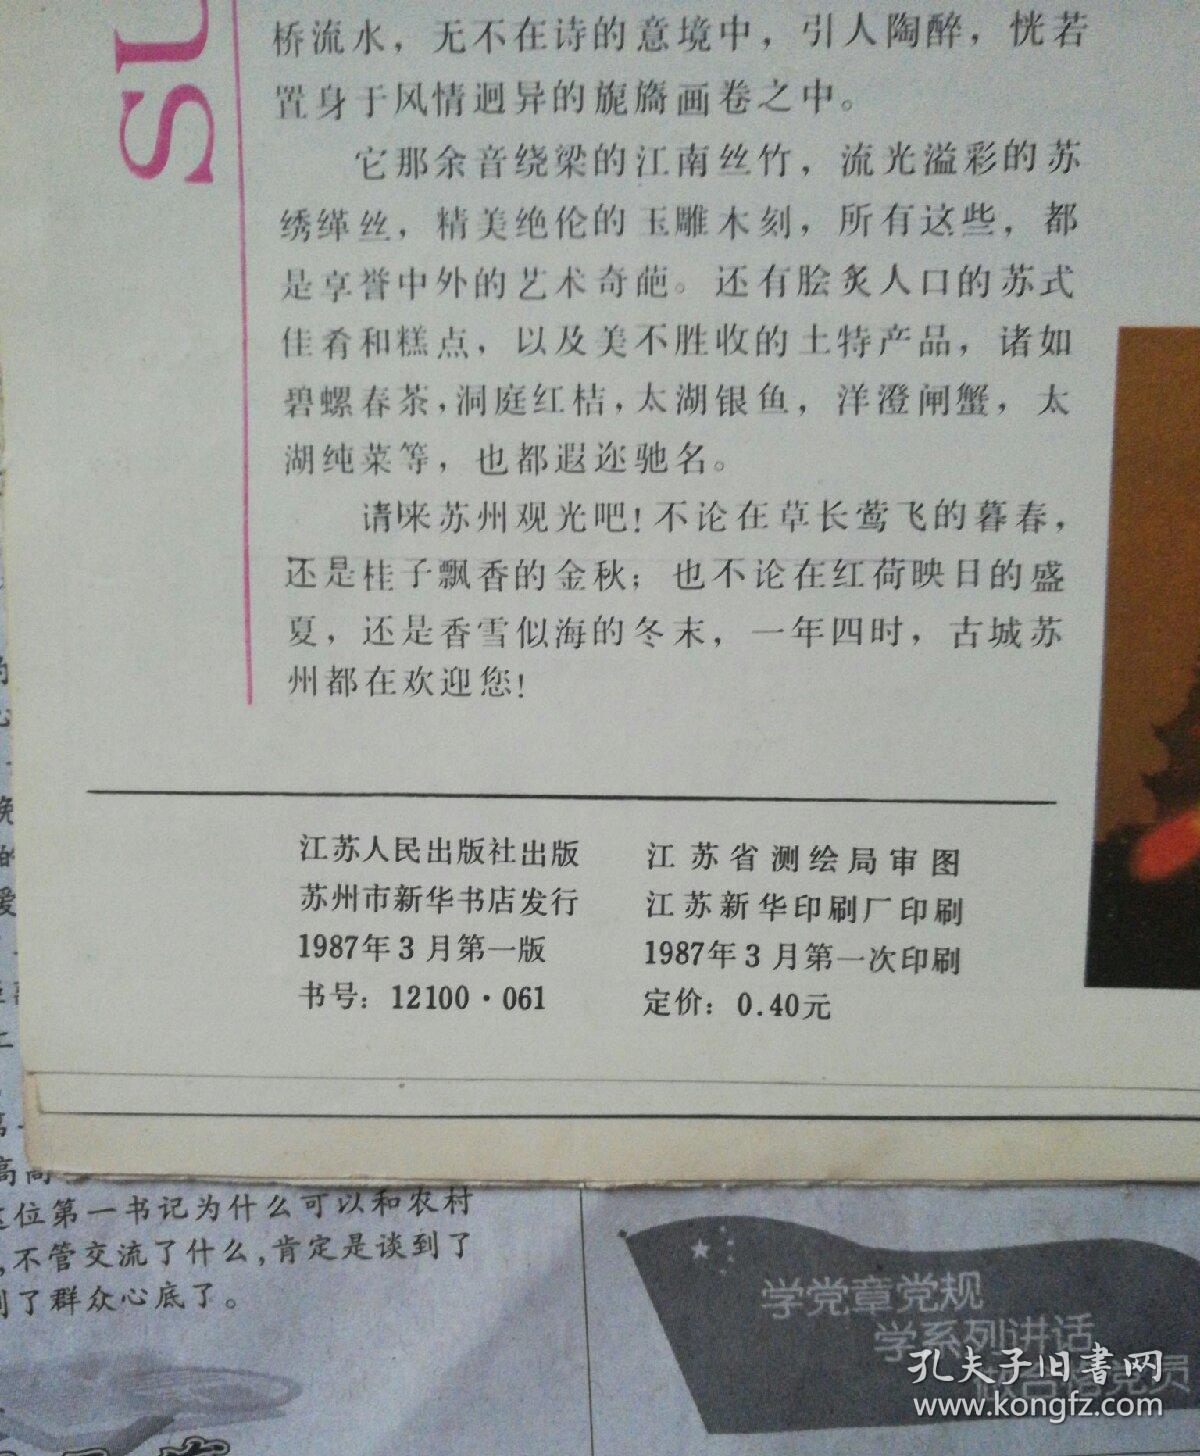 SU
桥流水，无不在诗的意境中，引人陶醉，恍若
置身于风情迥异的旎旖画卷之中。
它那余音绕梁的江南丝竹，流光溢彩的苏
绣缂丝，精美绝伦的玉雕木刻，所有这些，都
是享誉中外的艺术奇葩。还有脍炙人口的苏式
佳肴和糕点，以及美不胜收的土特产品，诸如
碧螺春茶，洞庭红桔，太湖银鱼，洋澄闸蟹，太
湖纯菜等，也都遐迩驰名。
请来苏州观光吧！不论在草长莺飞的暮春，
还是桂子飘香的金秋；也不论在红荷映日的盛
夏，还是香雪似海的冬末，一年四时，古城苏
州都在欢迎您！
江苏人民出版社出版
苏州市新华书店发行
1987年3月第一版
书号：12100·061
江苏省测绘局审图
江苏新华印刷厂印刷
1987年3月第一次印刷
定价：0.40元
这位第一书记为什么可以和农村
，不管交流了什么，肯定是谈到了
到了群众心底了。
学党章党规
学系列讲话
做合格党员
孔夫子旧書网
www.kongfz.com